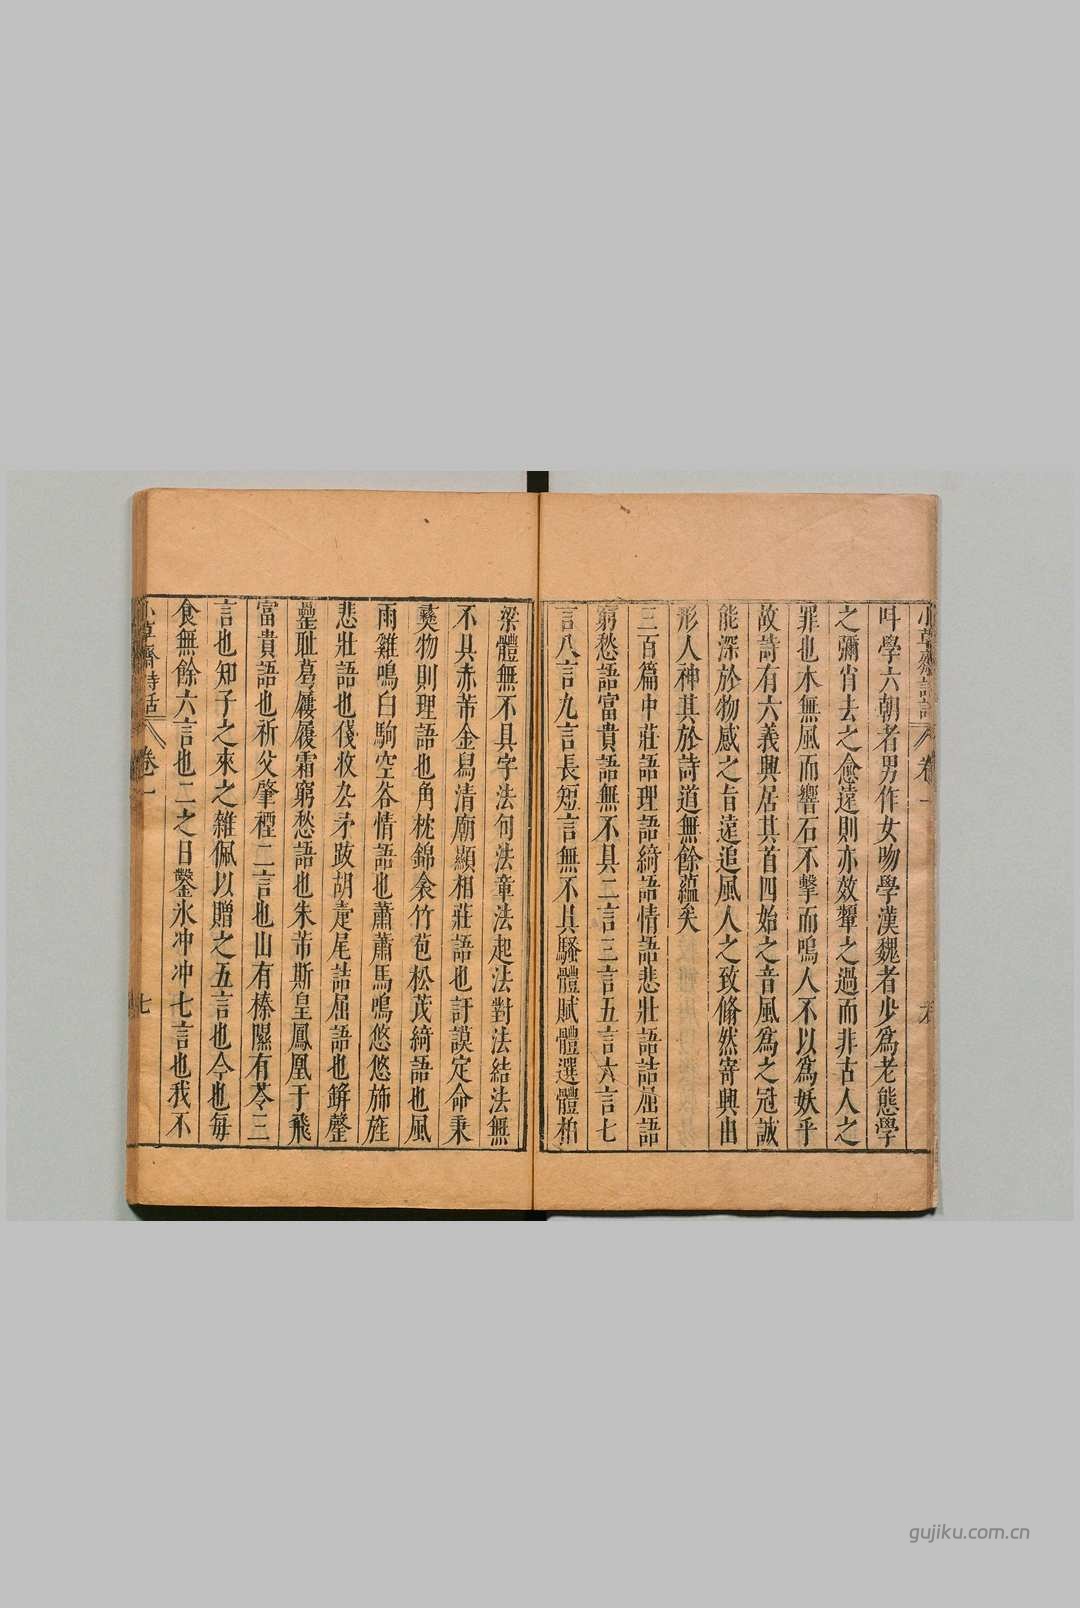 叫學六朝者男作女吻學漢魏者少爲老態學
之彌肖去之愈遠則亦效顰之過而非古人之
罪也木無風而響石不擊而鳴人不以爲妖乎
故詩有六義興居其首四始之音風爲之冠誠
能深於物感之旨遠追風人之致翛然寄興由
形人神其於詩道無餘蘊矣
三百篇中莊語理語綺語情語悲壯語詰屈語
窮愁語富貴語無不具二言三言五言六言七
言八言九言長短言無不具騷體賦體選體柏
梁體無不具字法句法章法起法對法結法無
不具赤芾金舄清廟顯相莊語也訏謨定命秉
彝物則理語也角枕錦衾竹苞松茂綺語也風
雨雞鳴白駒空谷情語也蕭蕭馬鳴悠悠斾旌
悲壯語也俴收厹矛跋胡疐尾詰屈語也缾罄
罍恥葛屨履霜窮愁語也朱芾斯皇鳳凰于飛
富貴語也祈父肇禋二言也山有榛隰有苓三
言也知子之來之雜佩以贈之五言也今也每
食無餘六言也二之日鑿氷冲冲七言也我不
小草齋詩話 卷一 七
gujiku.com.cn